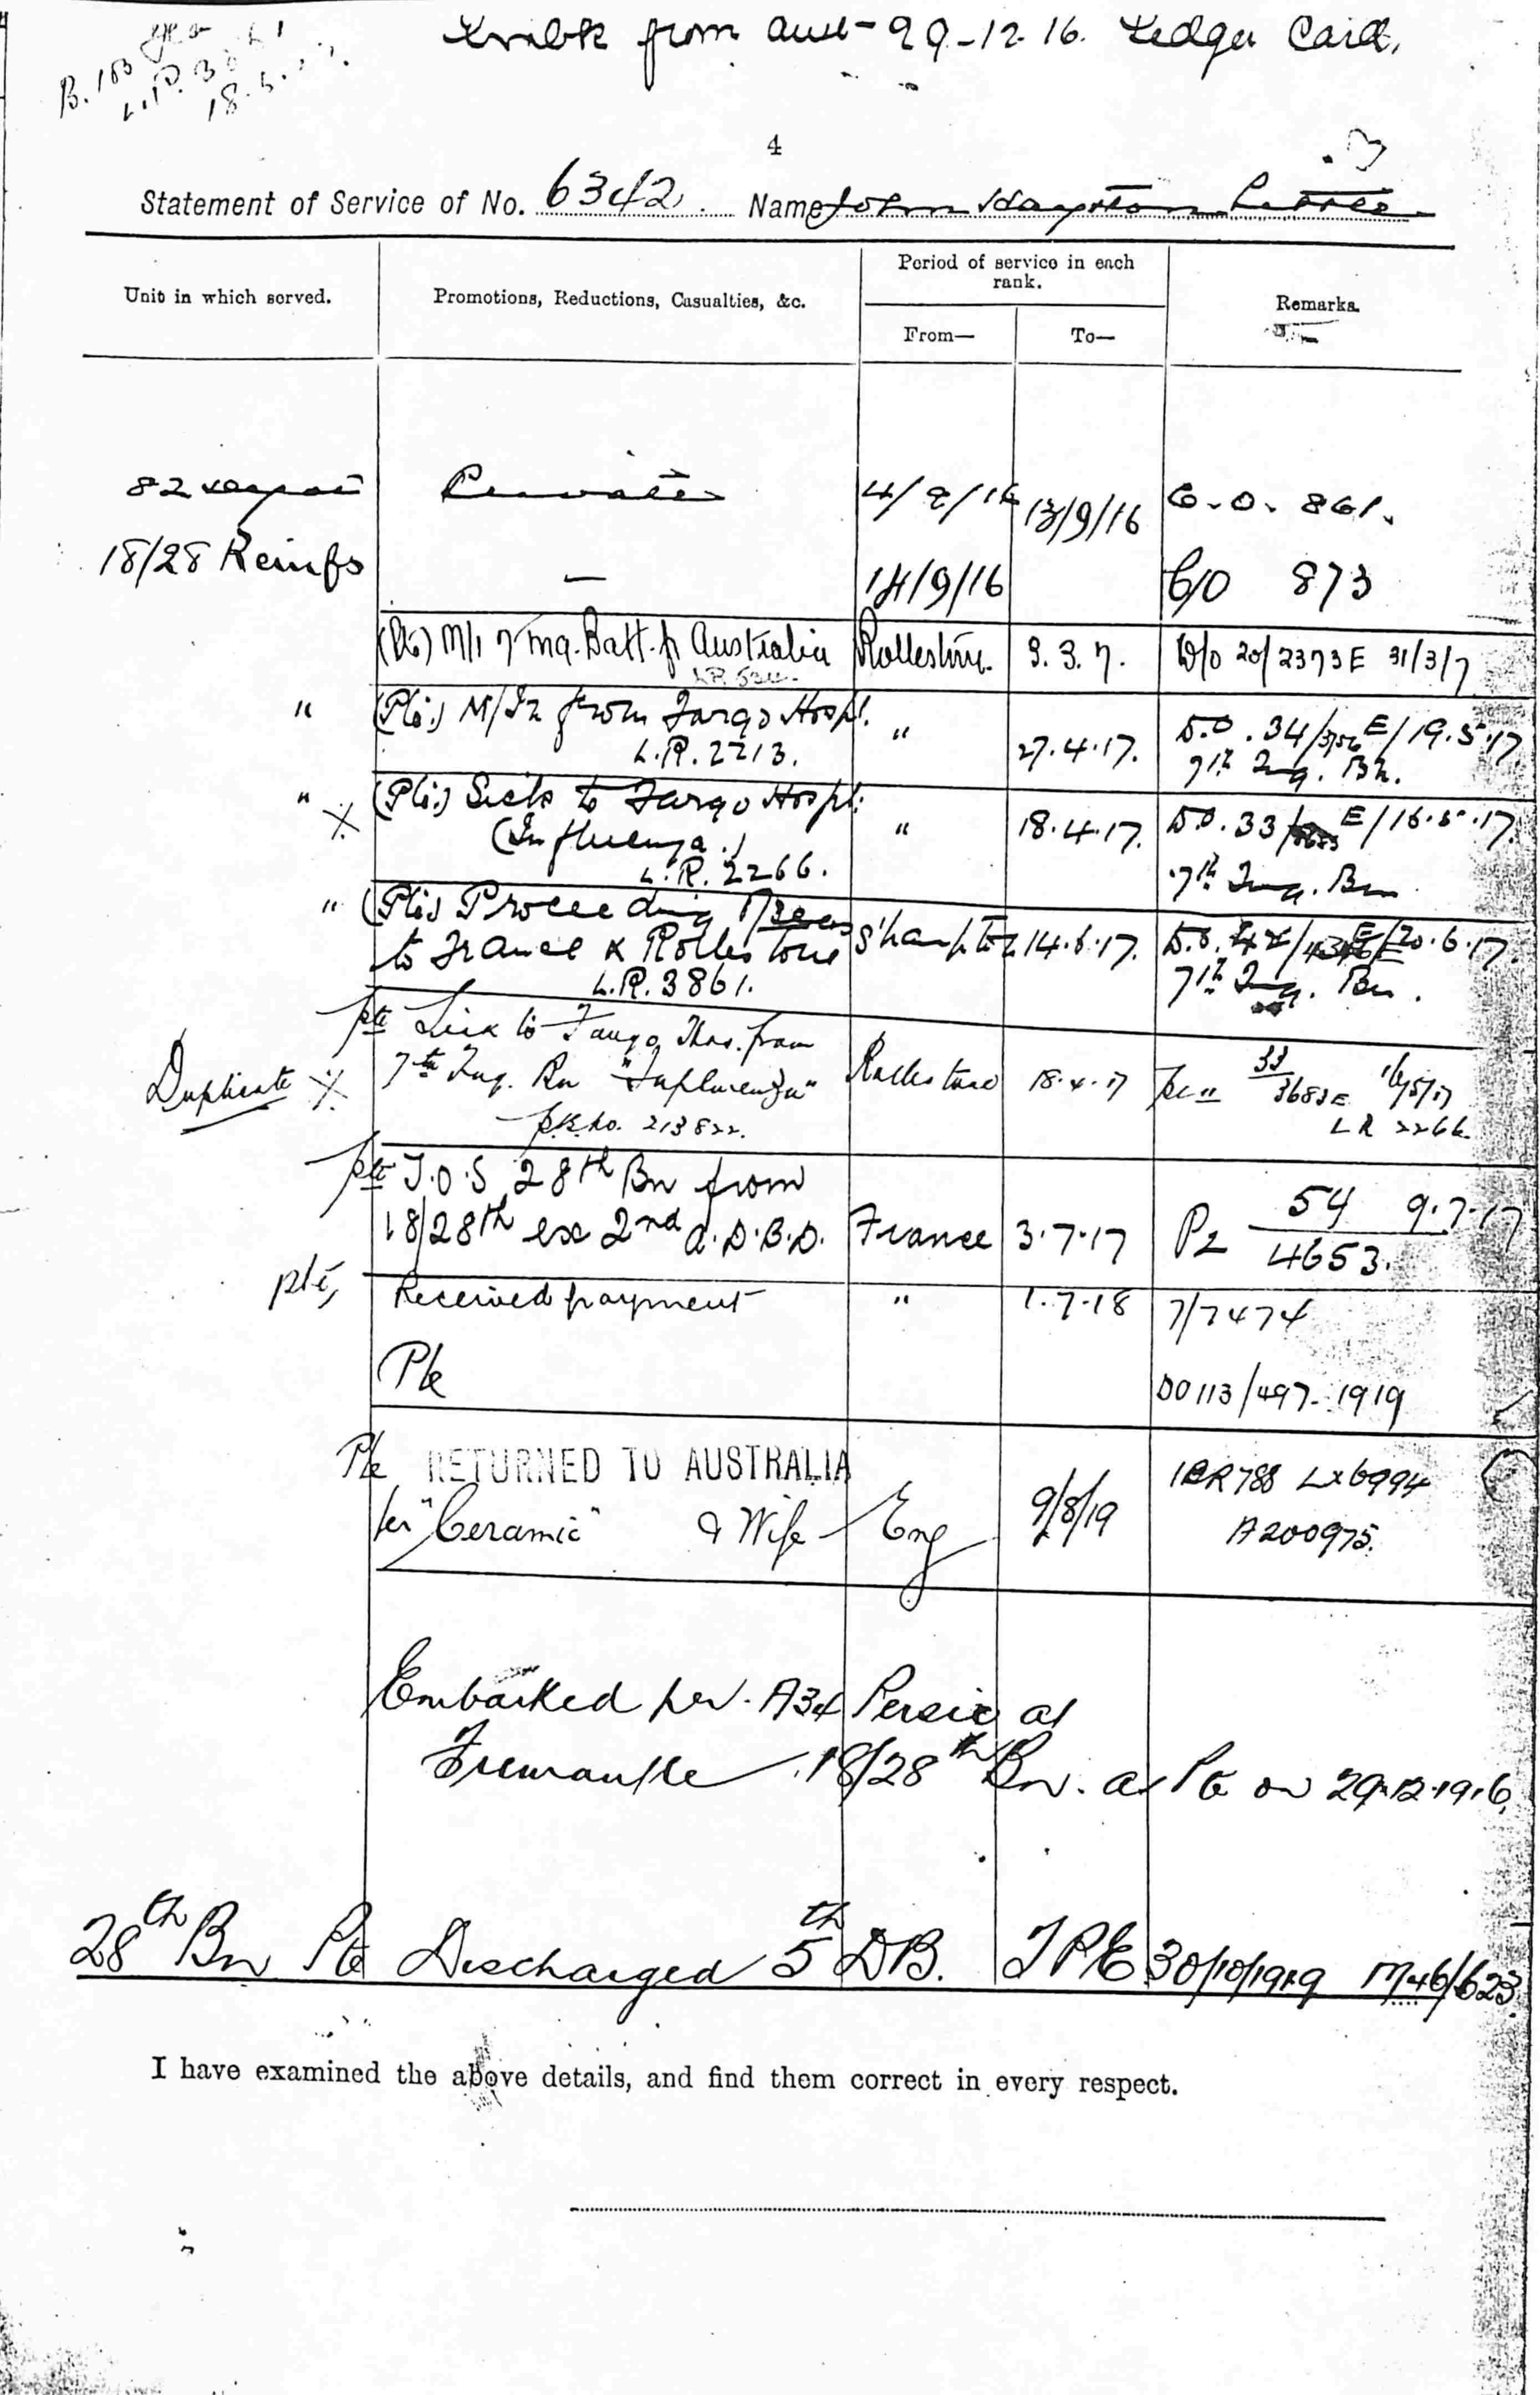 from Aust - 29-12-16. Ledger Card.
B. 103
4
Statement of Service of No. 6342. Name John
Unit in which served.
Promotions, Reductions, Casualties, &c.
Period of service in each rank.
From—
To—
Remarks.
82 Depot Private 13/9/16 C.O. 861.
18/28 Reinfs — 14/9/16 C/O 873
M/I 7 Trng. Batt. Australia Rollestone. 3.3.7. 20/2373E 31/3/7
" (Pte.) M/In from Fargo Hospl. " 27.4.17. D.O. 34/ E/19.5.17
L.R. 2213. 7th Trng. Bn.
" (Pte.) Sick to Fargo Hospl. " 18.4.17. D.O. 33/ E/16.5.17.
(Influenza.) 7th Trng. Bn
L.R. 2266.
" (Pte.) Proceeding O'seas S'hampton 14.6.17. E/20.6.17
to France ex Rollestone 7th Trng. Bn.
L.R. 3861.
Pte Sick to Fargo Hos. from
Duplicate 7th Trng. Bn "Influenza" Rollestone 18.4.17 33 16/5/17
213822. 3683E
LR 2266.
Pte T.O.S 28th Bn from
18/28th ex 2nd A.D.B.D. France 3.7.17 54 9.7.17
4653.
Pte, Received payment " 1.7.18 7/7474
Pte DO 113/497 - 1919
Pte RETURNED TO AUSTRALIA
per "Ceramic" & Wife Eng 9/8/19 A200975.
Embarked per A34 Persic at
Fremantle 18/28th Bn. as Pte on 29.12.1916.
28th Bn Pte Discharged 5th DB. TPE 30/10/1919 M46/623
I have examined the above details, and find them correct in every respect.